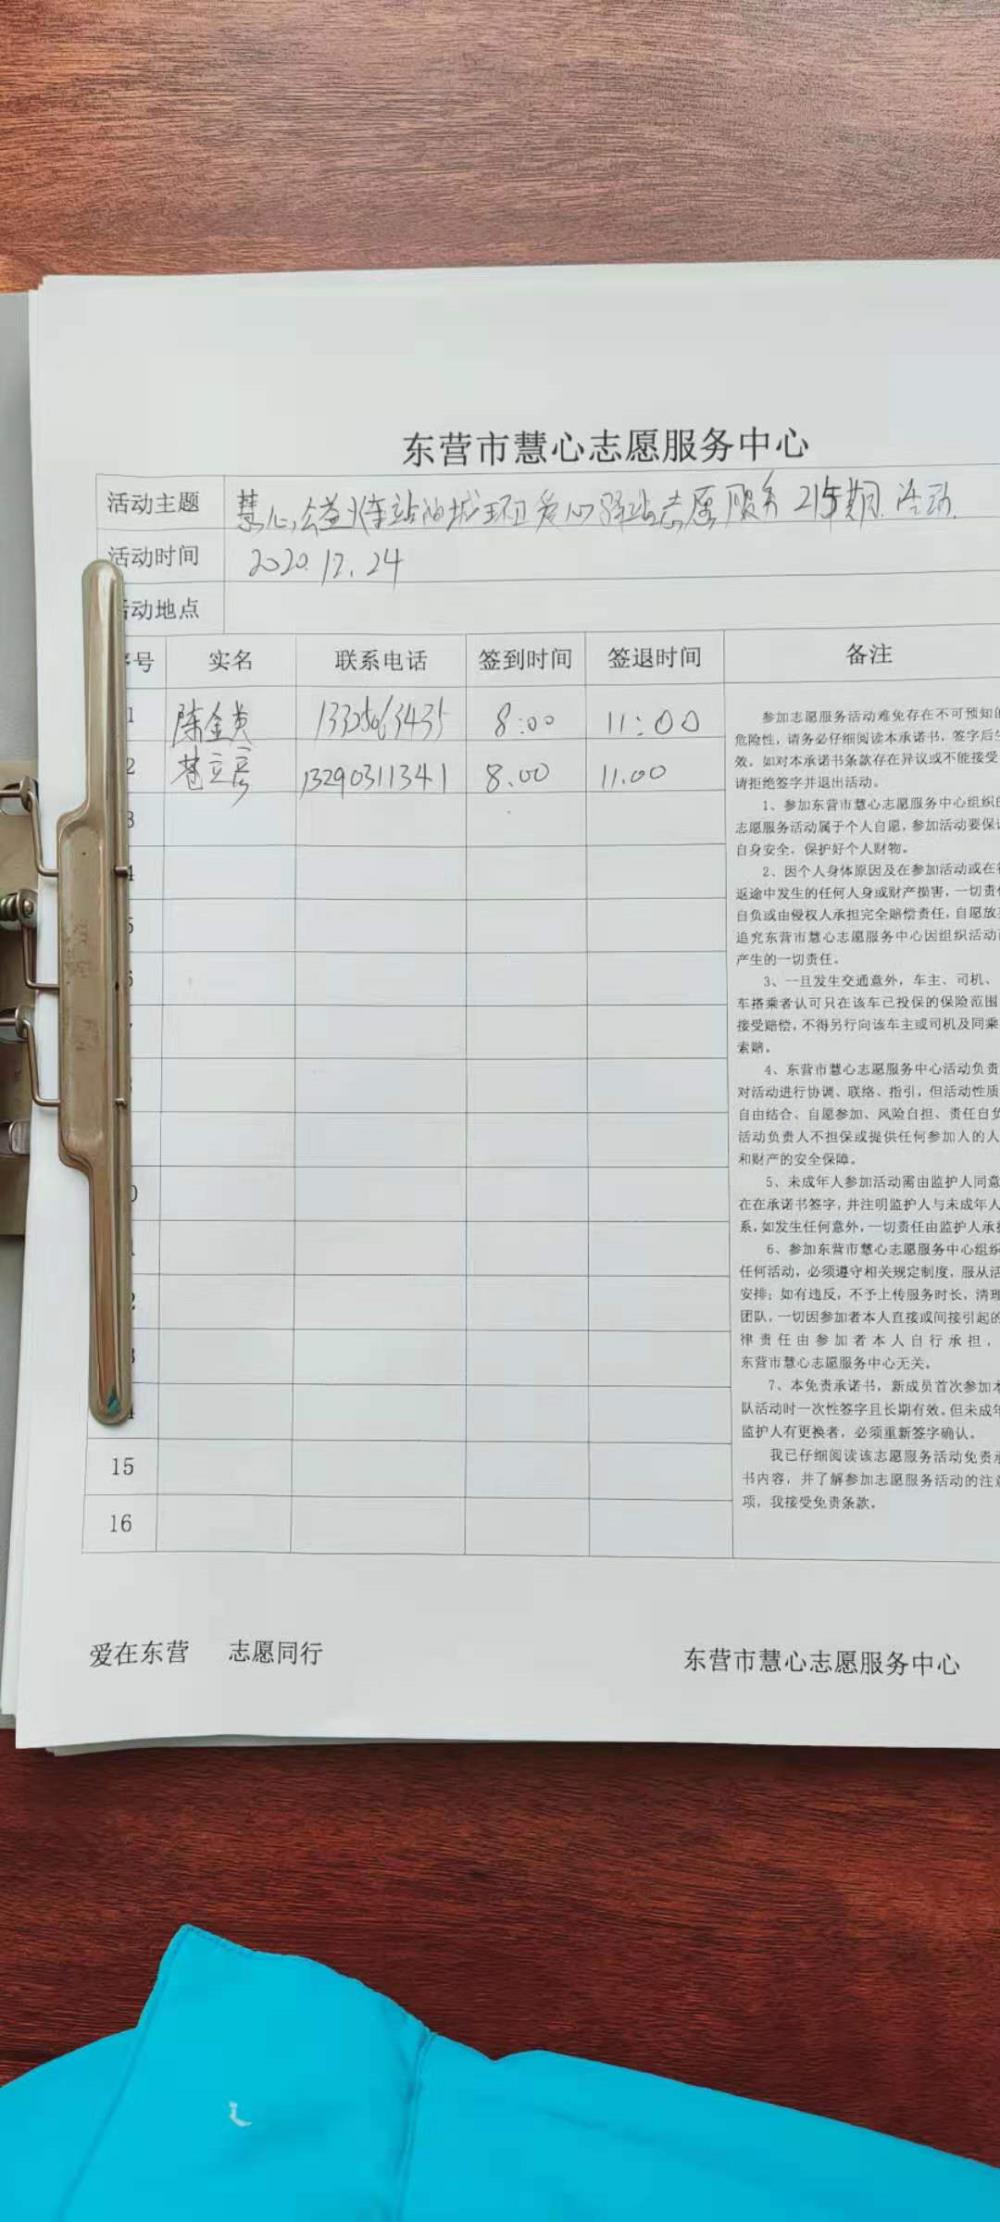 东营市慧心志愿服务中心
活动主题 慧心公益火车站油城环卫爱心驿站志愿服务215期活动
活动时间 2020.12.24
活动地点
号 实名 联系电话 签到时间 签退时间 备注
1 陈金英 13325063435 8:00 11:00
2 立房 13290311341 8.00 11.00
15
16
参加志愿服务活动难免存在不可预知的
危险性，请务必仔细阅读本承诺书，签字后生
效。如对本承诺书条款存在异议或不能接受
请拒绝签字并退出活动。
1、参加东营市慧心志愿服务中心组织的
志愿服务活动属于个人自愿，参加活动要保证
自身安全，保护好个人财物。
2、因个人身体原因及在参加活动或在往
返途中发生的任何人身或财产损害，一切责任
自负或由侵权人承担完全赔偿责任，自愿放弃
追究东营市慧心志愿服务中心因组织活动而
产生的一切责任。
3、一旦发生交通意外，车主、司机、
车搭乘者认可只在该车已投保的保险范围
接受赔偿，不得另行向该车主或司机及同乘
索赔。
4、东营市慧心志愿服务中心活动负责
对活动进行协调、联络、指引，但活动性质
自由结合、自愿参加、风险自担、责任自负
活动负责人不担保或提供任何参加人的人
和财产的安全保障。
5、未成年人参加活动需由监护人同意
在在承诺书签字，并注明监护人与未成年人
系，如发生任何意外，一切责任由监护人承担
6、参加东营市慧心志愿服务中心组织
任何活动，必须遵守相关规定制度，服从活
安排；如有违反，不予上传服务时长，清理
团队，一切因参加者本人直接或间接引起的
律责任由参加者本人自行承担，
东营市慧心志愿服务中心无关。
7、本免责承诺书，新成员首次参加本
队活动时一次性签字且长期有效。但未成年
监护人有更换者，必须重新签字确认。
我已仔细阅读该志愿服务活动免责承
书内容，并了解参加志愿服务活动的注意
项，我接受免责条款。
爱在东营 志愿同行
东营市慧心志愿服务中心